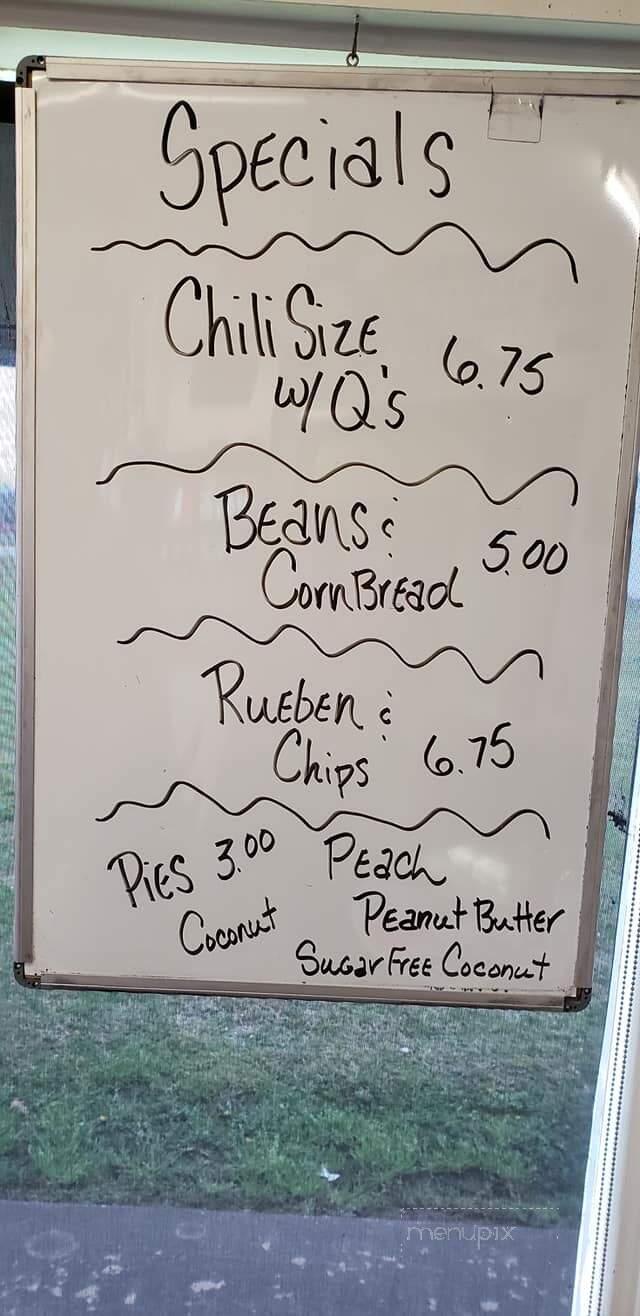 Specials
Chili Size
w/ Q's 6.75
Beans &
CornBread 5.00
Rueben &
Chips 6.75
Pies 3.00 Peach
Coconut Peanut Butter
Sugar Free Coconut
menupix